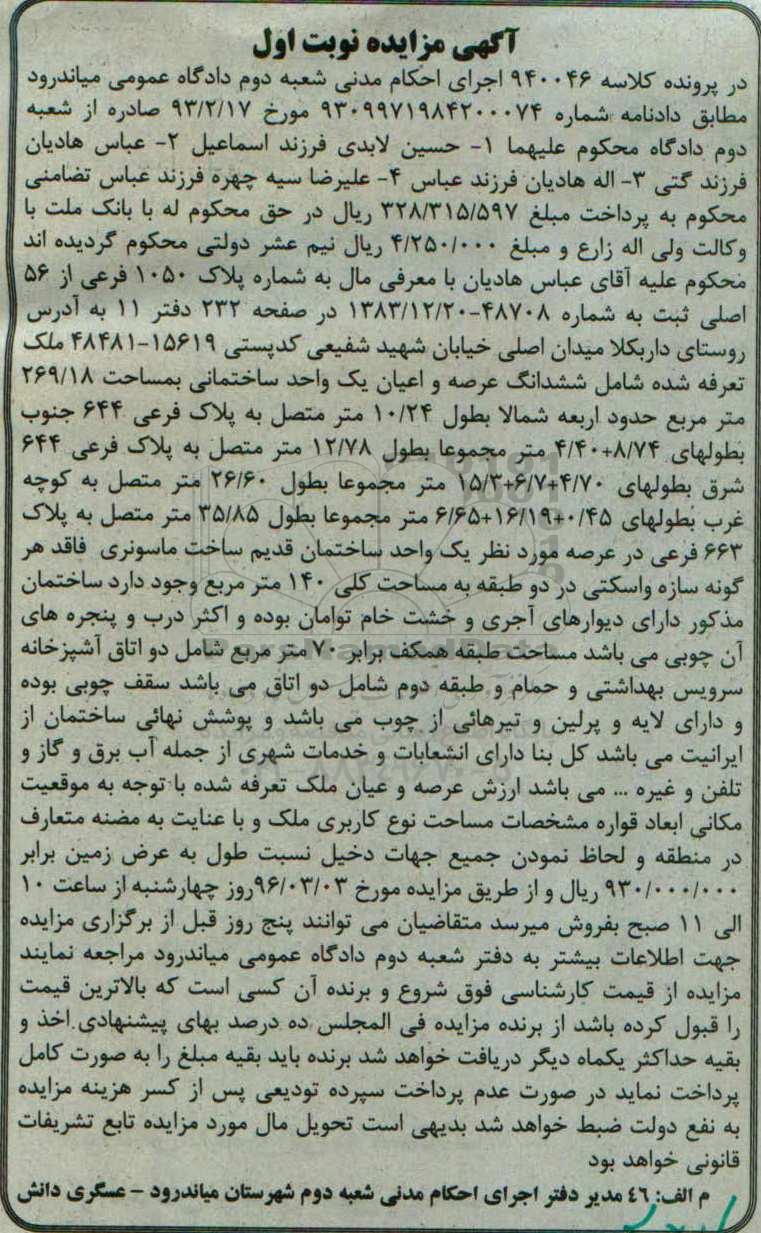 آگهی مزایده نوبت اول
در پرونده کلاسه ۹۴۰۰۴۶ اجرای احکام مدنی شعبه دوم دادگاه عمومی میاندرود
مطابق دادنامه شماره ۹۳۰۹۹۷۱۹۸۴۲۰۰۰۷۴ مورخ ۹۳/۲/۱۷ صادره از شعبه
دوم دادگاه محکوم علیهما ۱- حسین لابدی فرزند اسماعیل ۲- عباس هادیان
فرزند گتی ۳- اله هادیان فرزند عباس ۴- علیرضا سیه چهره فرزند عباس تضامنی
محکوم به پرداخت مبلغ ۳۲۸/۳۱۵/۵۹۷ ریال در حق محکوم له با بانک ملت با
وکالت ولی اله زارع و مبلغ ۴/۲۵۰/۰۰۰ ریال نیم عشر دولتی محکوم گردیده اند
محکوم علیه آقای عباس هادیان با معرفی مال به شماره پلاک ۱۰۵۰ فرعی از ۵۶
اصلی ثبت به شماره ۴۸۷۰۸-۱۳۸۳/۱۲/۲۰ در صفحه ۲۳۲ دفتر ۱۱ به آدرس
روستای داربکلا میدان اصلی خیابان شهید شفیعی کدپستی ۱۵۶۱۹-۴۸۴۸۱ ملک
تعرفه شده شامل ششدانگ عرصه و اعیان یک واحد ساختمانی بمساحت ۲۶۹/۱۸
متر مربع حدود اربعه شمالا بطول ۱۰/۲۴ متر متصل به پلاک فرعی ۶۴۴ جنوب
بطولهای ۸/۷۴+۴/۴۰ متر مجموعا بطول ۱۲/۷۸ متر متصل به پلاک فرعی ۶۴۴
شرق بطولهای ۴/۷۰+۶/۷+۱۵/۳ متر مجموعا بطول ۲۶/۶۰ متر متصل به کوچه
غرب بطولهای ۰/۴۵+۱۶/۱۹+۶/۶۵ متر مجموعا بطول ۳۵/۸۵ متر متصل به پلاک
۶۶۳ فرعی در عرصه مورد نظر یک واحد ساختمان قدیم ساخت ماسونری فاقد هر
گونه سازه واسکتی در دو طبقه به مساحت کلی ۱۴۰ متر مربع وجود دارد ساختمان
مذکور دارای دیوارهای آجری و خشت خام توامان بوده و اکثر درب و پنجره های
آن چوبی می باشد مساحت طبقه همکف برابر ۷۰ متر مربع شامل دو اتاق آشپزخانه
سرویس بهداشتی و حمام و طبقه دوم شامل دو اتاق می باشد سقف چوبی بوده
و دارای لایه و پرلین و تیرهائی از چوب می باشد و پوشش نهائی ساختمان از
ایرانیت می باشد کل بنا دارای انشعابات و خدمات شهری از جمله آب برق و گاز و
تلفن و غیره ... می باشد ارزش عرصه و عیان ملک تعرفه شده با توجه به موقعیت
مکانی ابعاد قواره مشخصات مساحت نوع کاربری ملک و با عنایت به مضنه متعارف
در منطقه و لحاظ نمودن جمیع جهات دخیل نسبت طول به عرض زمین برابر
۹۳۰/۰۰۰/۰۰۰ ریال و از طریق مزایده مورخ ۹۶/۰۳/۰۳روز چهارشنبه از ساعت ۱۰
الی ۱۱ صبح بفروش میرسد متقاضیان می توانند پنج روز قبل از برگزاری مزایده
جهت اطلاعات بیشتر به دفتر شعبه دوم دادگاه عمومی میاندرود مراجعه نمایند
مزایده از قیمت کارشناسی فوق شروع و برنده آن کسی است که بالاترین قیمت
را قبول کرده باشد از برنده مزایده فی المجلس ده درصد بهای پیشنهادی اخذ و
بقیه حداکثر یکماه دیگر دریافت خواهد شد برنده باید بقیه مبلغ را به صورت کامل
پرداخت نماید در صورت عدم پرداخت سپرده تودیعی پس از کسر هزینه مزایده
به نفع دولت ضبط خواهد شد بدیهی است تحویل مال مورد مزایده تابع تشریفات
قانونی خواهد بود
م الف: ٤٦ مدیر دفتر اجرای احکام مدنی شعبه دوم شهرستان میاندرود - عسگری دانش